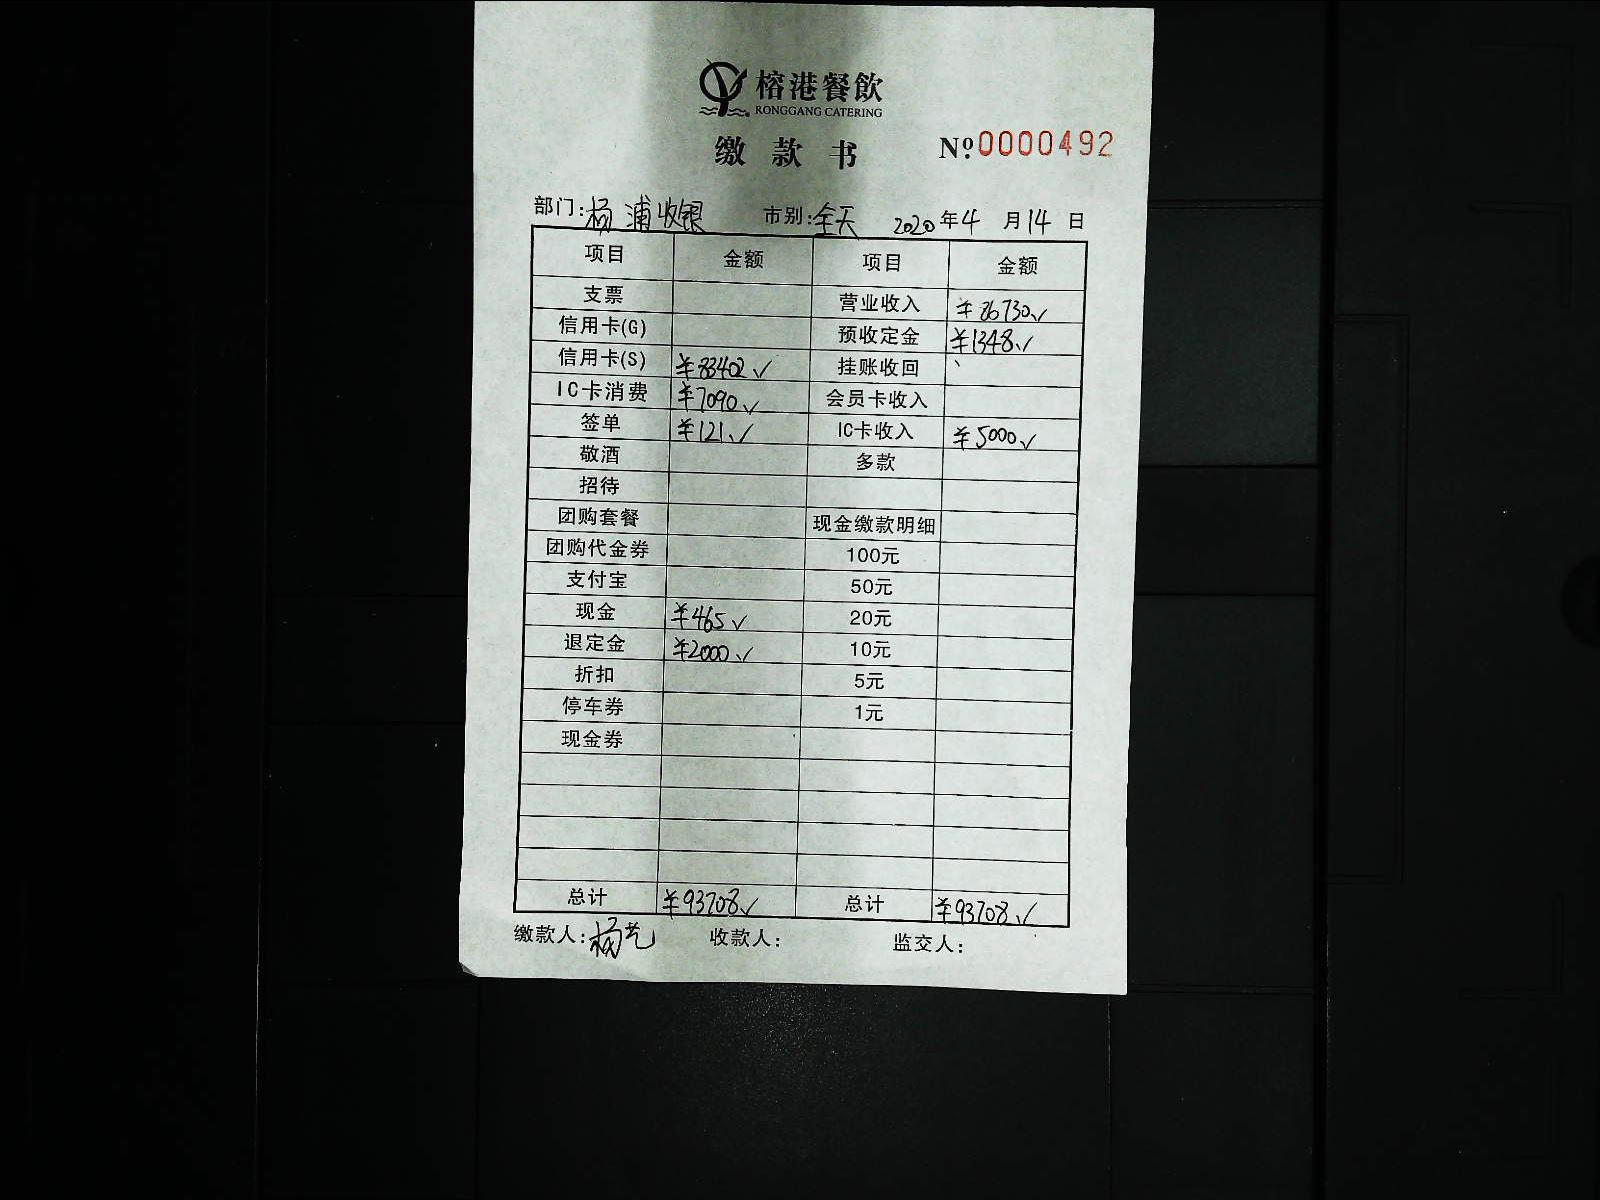 榕港餐飲
RONGGANG CATERING
缴款书 Nº.0000492
部门:杨浦收银 市别:全天 2020年4月14日
项目 金额 项目 金额
支票 营业收入 ¥86730√
信用卡(G) 预收定金 ¥1348√
信用卡(S) ¥83402√ 挂账收回
IC卡消费 ¥7090√ 会员卡收入
签单 ¥121√ IC卡收入 ¥5000√
敬酒 多款
招待
团购套餐 现金缴款明细
团购代金券 100元
支付宝 50元
现金 ¥465√ 20元
退定金 ¥2000√ 10元
折扣 5元
停车券 1元
现金券
总计 ¥93078√ 总计 ¥93078√
缴款人:杨艺 收款人: 监交人: